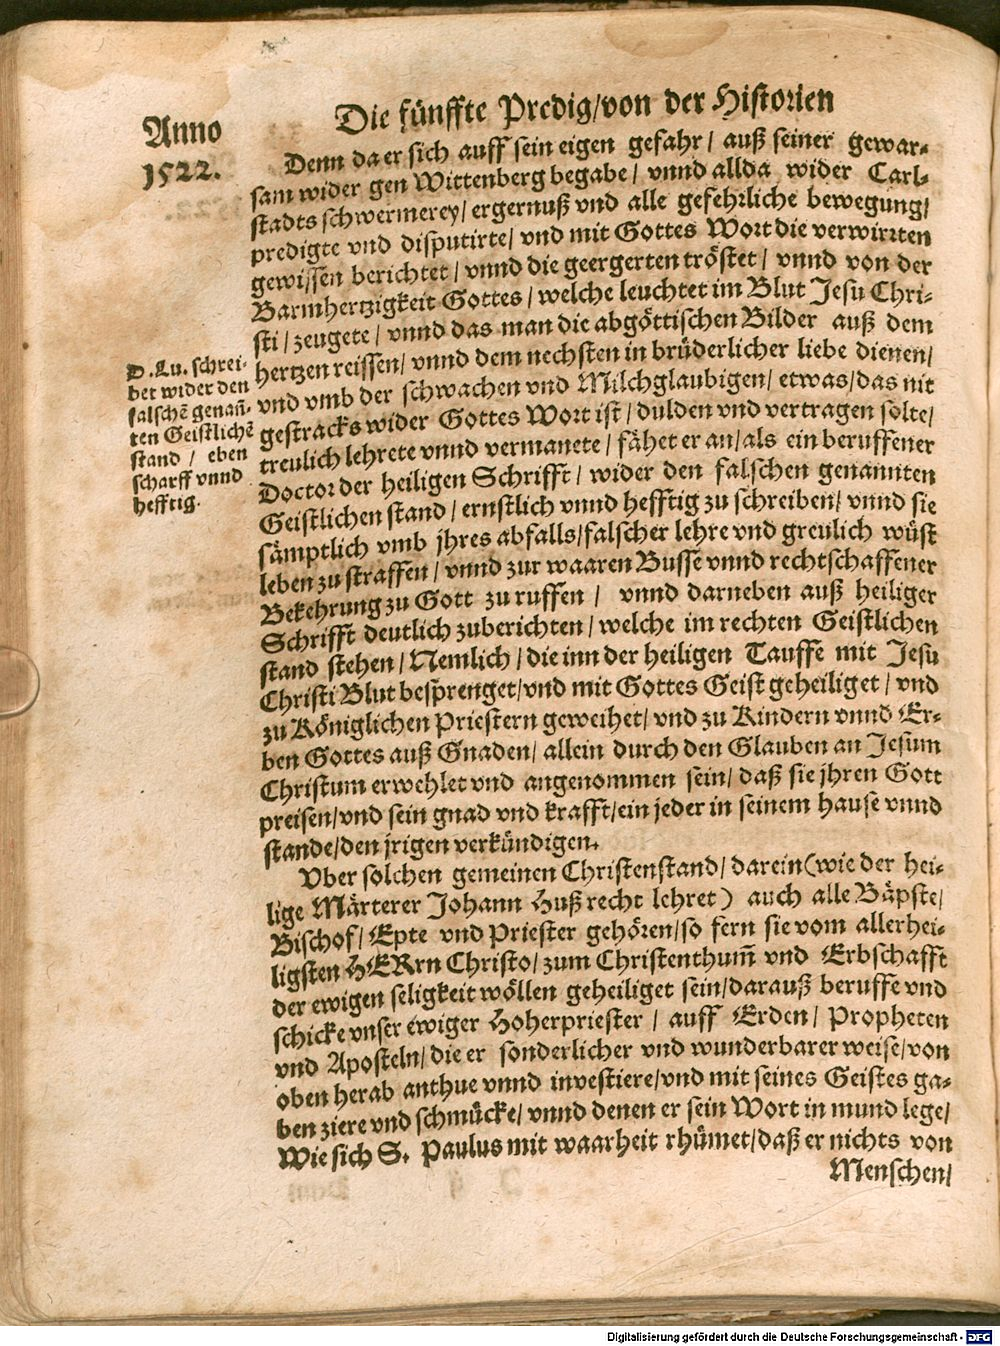 Die fünffte Predig/von der Historien
Anno
1522.
Denn da er sich auff sein eigen gefahr/ auß seiner gewar-
sam wider gen Wittenberg begabe/ vnnd allda wider Carl-
stadts schwermerey/ ergernuß vnd alle gefehrliche bewegung/
predigte vnd disputirte/ vnd mit Gottes Wort die verwirrten
gewissen berichtet/ vnnd die geergerten tröstet/ vnnd von der
Barmhertzigkeit Gottes/ welche leuchtet im Blut Jesu Chri-
sti/ zeugete/ vnnd das man die abgöttischen Bilder auß dem
hertzen reissen/ vnnd dem nechsten in brüderlicher liebe dienen/
vnd vmb der schwachen vnd Milchglaubigen/ etwas/das nit
gestracks wider Gottes Wort ist/ dulden vnd vertragen solte/
treulich lehrete vnnd vermanete/ fähet er an/als ein beruffener
Doctor der heiligen Schrifft/ wider den falschen genannten
Geistlichen stand/ ernstlich vnnd hefftig zu schreiben/ vnnd sie
sämptlich vmb jhres abfalls/falscher lehre vnd greulich wüst
leben zu straffen/ vnnd zur waaren Busse vnnd rechtschaffener
Bekehrung zu Gott zu ruffen/ vnnd darneben auß heiliger
Schrifft deutlich zuberichten/ welche im rechten Geistlichen
stand stehen/ Nemlich/ die inn der heiligen Tauffe mit Jesu
Christi Blut besprenget/vnd mit Gottes Geist geheiliget/ vnd
zu Königlichen Priestern geweihet/ vnd zu Kindern vnnd Er-
ben Gottes auß Gnaden/ allein durch den Glauben an Jesum
Christum erwehlet vnd angenommen sein/ daß sie jhren Gott
preisen/vnd sein gnad vnd krafft/ein jeder in seinem hause vnnd
stande/den jrigen verkündigen.
D. Lu. schrei-
bet wider den
falschẽ genañ-
ten Geistlichẽ
stand/ eben
scharff vnnd
hefftig.
Vber solchen gemeinen Christenstand/ darein (wie der hei-
lige Märterer Johann Huß recht lehret) auch alle Bäpste/
Bischof/ Epte vnd Priester gehören/so fern sie vom allerhei-
ligsten HERrn Christo/ zum Christenthum̃ vnd Erbschafft
der ewigen seligkeit wöllen geheiliget sein/darauß beruffe vnd
schicke vnser ewiger Hoherpriester/ auff Erden/ Propheten
vnd Aposteln/ die er sonderlicher vnd wunderbarer weise/von
oben herab anthue vnnd investiere/vnd mit seines Geistes ga-
ben ziere vnd schmücke/ vnnd denen er sein Wort in mund lege/
Wie sich S. Paulus mit waarheit rhümet/daß er nichts von
Menschen/
Digitalisierung gefördert durch die Deutsche Forschungsgemeinschaft - DFG